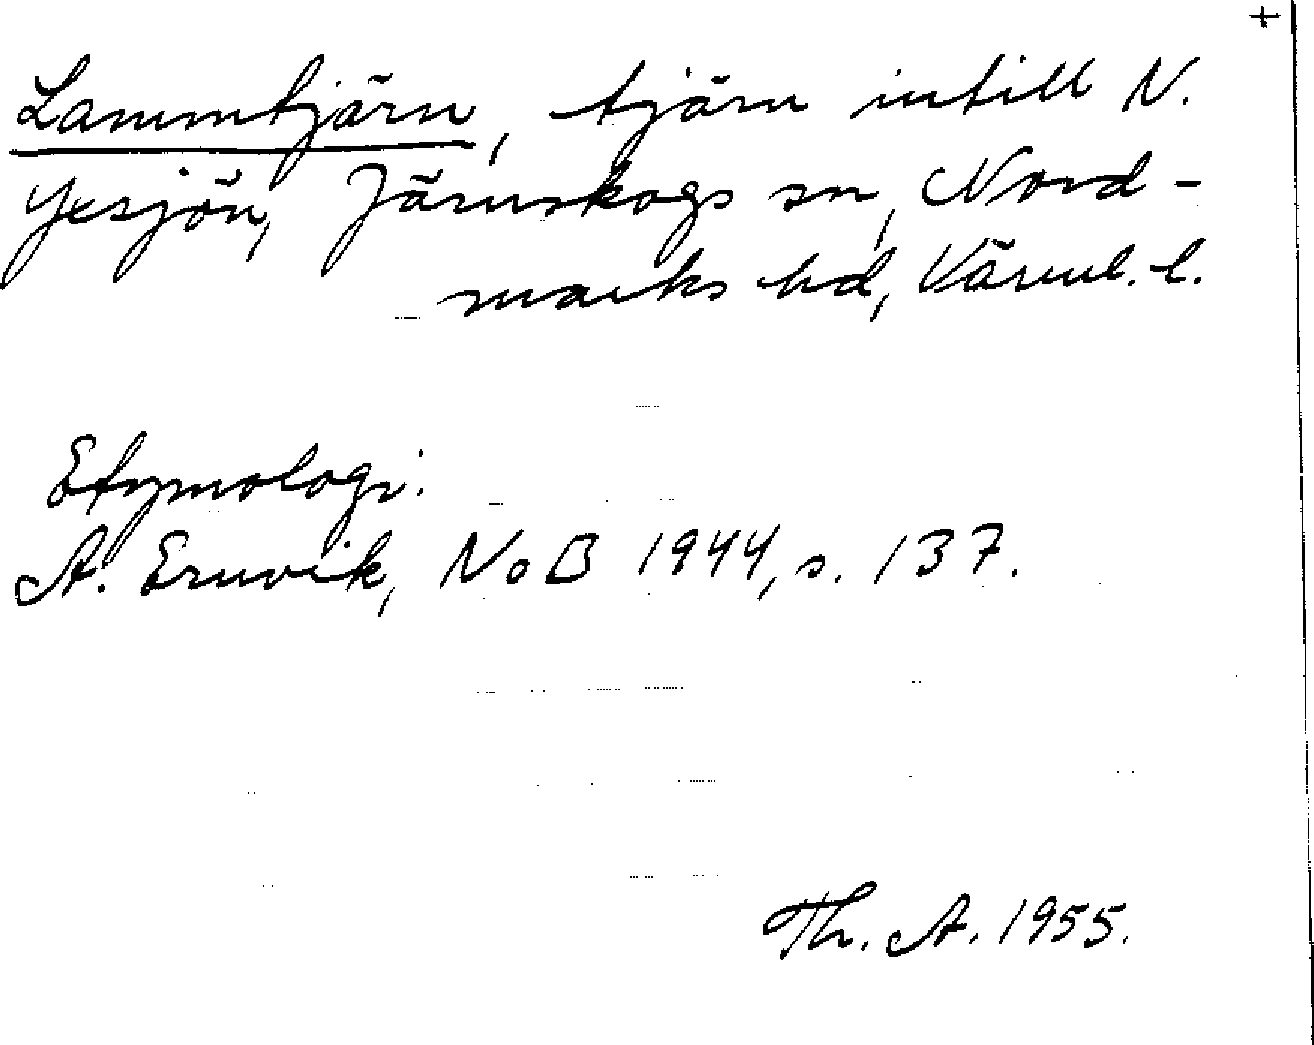 +
Lammtjärn, tjärn intill N.
Yesjön, Järnskogs sn, Nord-
marks hd, Värml. l.
Etymologi:
A. Ernvik, NoB 1944, s. 137.
Th. A. 1955.